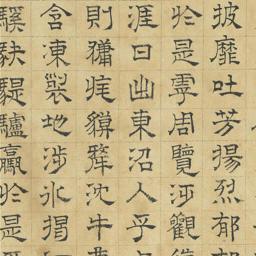 披靡吐芳揚烈郁
於是虖周覽泛觀
涯日出東沼入乎
則貘犛沈牛
含凍裂地涉冰揭
騱駃騠驢驘於是